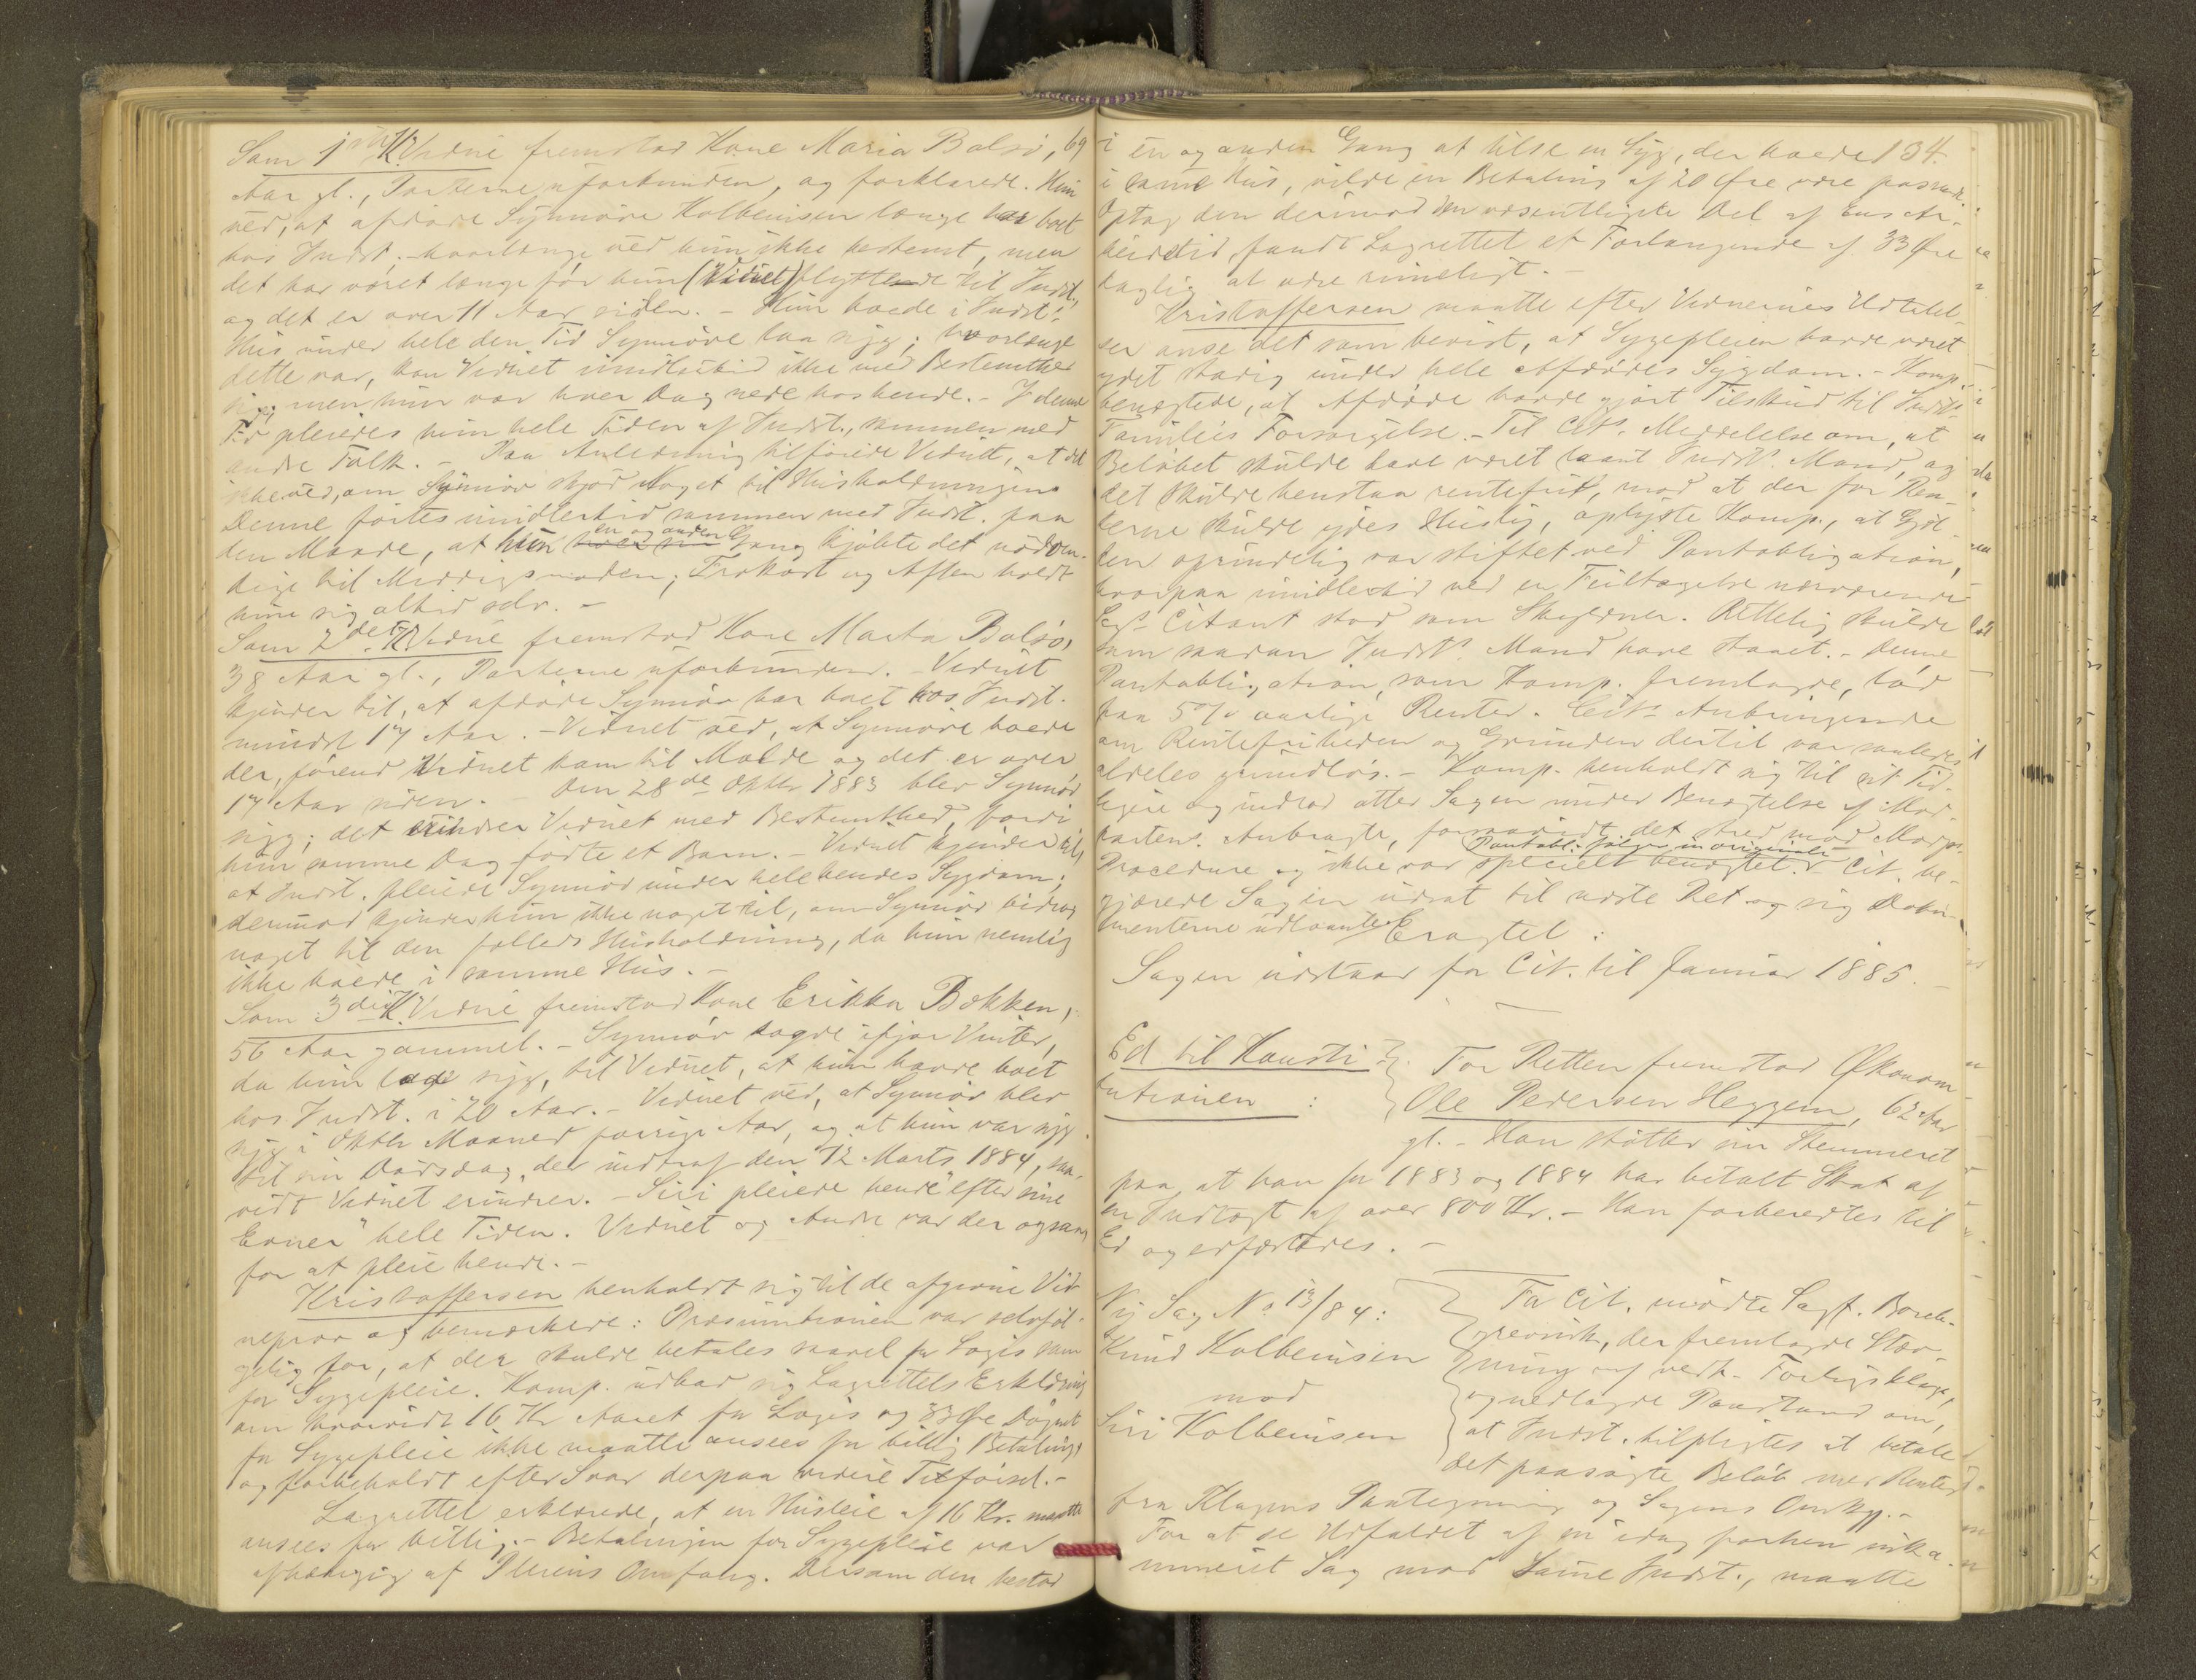 Som 1ste K. Vidne fremstod Kone Maria Bolsø, 69
Aar gl., Parterne uforbunden, og forklarede. Hun
ved, at afdøde Synnøve Kolbeinsen længe har boet
hos Indst.; hvorlænge ved hun ikke bestemt, men
det har været længe før hun (Vidnet) flyttede til Indst.,
og det er over 11 Aar siden. - Hun boede i Indst.s
Hus under hele den Tid Synnøve laa syg; hvorlænge
dette var, kan Vidnet imidlertid ikke med Bestemthed
sige, men hun var hver Dag nede hos hende. - I denne
Tid pleiedes hun hele Tiden af Indst., sammen med
andre Folk. - Paa Anledning tilføiede Vidnet, at det
ikke ved, om Synnøv skjød Noget til Husholdningen.
Denne førtes imidlertid sammen med Indst. paa
den Maade, at hun en og anden Gang kjøbte det nødven-
dige til Middagsmaden; Frokost og Aften holdt
hun sig altid selv. -
Som 2det K. Vidne fremstod Kone Marta Bolsø,
38 Aar gl., Parterne uforbunden. - Vidnet
kjender til, at afdøde Synnøv har boet hos Indst.
mindst 17 Aar. - Vidnet ved, at Synnøve boede
der, førend Vidnet kom til Molde og det er over
17 Aar siden. - Den 28de Oktbr 1883 blev Synnøv
syg; det erindrer Vidnet med Bestemthed, fordi
hun samme Dag fødte et Barn. - Vidnet kjender til,
at Indst. pleiede Synnøv under hele hendes Sygdom;
derimod kjender hun ikke noget til, om Synnøv bidrog
noget til den fælleds Husholdning, da hun nemlig
ikke boede i samme Hus. -
Som 3die K. Vidne fremstod Kone Erikka Bakken,
56 Aar gammel. - Synnøv sagde ifjor Vinter,
da hun laa syg, til Vidnet, at hun havde boet
hos Indst. i 20 Aar. - Vidnet ved, at Synnøv blev
syg i Oktbr Maaned forrige Aar, og at hun var syg
til sin Dødsdag, der indtraf den 12 Marts 1884, saa-
vidt Vidnet erindrer. - Siri pleiede hende "efter sine
Evner" hele Tiden. Vidnet og Andre var der ogsaa
for at pleie hende. -
Kristoffersen henholdt sig til de afgivne Vid-
neprov og bemærkede: Præsumtionen var selvføl-
gelig for, at der skulde betales saavel for Logis som
for Sygepleie. Komp. udbad sig Lagrettets Erklæring
om hvorvidt 16 Kr Aaret for Logis og 33 Øre Døgnet
for Sygepleie ikke maatte ansees for billig Betaling,
og forbeholdt efter Svar derpaa videre Tilførsel. -
Lagrettet erklærede, at en Husleie af 16 Kr. maatte
ansees for billig. - Betalingen for Sygepleie var
afhængig af Pleiens Omfang. Dersom den bestod
134.
i en og anden Gang at tilse en Syg, der boede
i samme Hus, vilde en Betaling af 20 Øre være passende.
Optog den derimod den væsentligste Del af Ens Ar-
beidstid, fandt Lagrettet et Forlangende af 33 Øre
daglig at være rimeligt. -
Kristoffersen maatte efter Vidnernes Udtalel-
ser anse det som bevist, at Sygepleien havde været
ydet stadig under hele Afdødes Sygdom. - Komp.
benægtede, at Afdøde havde gjort Tilskud til Indst.s
Families Forsørgelse. - Til Cits. Meddelelse om, at
Beløbet skulde have været laant Indst.s Mand, og
det skulde henstaa rentefrit, mod at der for Ren-
terne skulde ydes Husly, oplyste Komp., at Gjæl-
den oprindelig var stiftet ved Pantobligation,
hvorpaa imidlertid ved en Feiltagelse nærværende
Sags Citant stod som Skyldner. Rettelig skulde
som saadan Indst.s Mand have staaet. - Denne
Pantobligation, som Komp. fremlagde, lød
paa 5% aarlige Renter. Cits. Anbringende
om Rentefriheden og Grunden dertil var saaledes
aldeles grundløs. - Komp. henholdt sig til sit Tid-
ligere og indlod atter Sagen under Benægtelse af Mod-
partens Anbragte, forsaavidt det stred mod Modp.s
Procedure og ikke var specielt benægtet. Pantobl. følger in originali. Cit. be-
gjærede Sagen udsat til næste Ret og sig Doku-
menterne udlaante. Eragtet:
Sagen udstaar for Cit. til Januar 1885. -
Ed til Konsti-
tutionen:
For Retten fremstod Økonom
Ole Pedersen Heggem, 62 Aar
gl. - Han støtter sin Stemmeret
paa, at han for 1883 og 1884 har betalt Skat af
en Indtægt af over 800 Kr. - Han forberedtes til
Ed og edfæstedes. -
Ny Sag No 13/84:
Knud Kolbeinsen
mod
Siri Kolbeinsen
For Cit. mødte Sagf. Borch-
grevink, der fremlagde Stæv-
ning og vedh. Forligsklage,
og nedlagde Paastand om,
at Indst. tilpligtes at betale
det paasøgte Beløb med Renter
fra Klagens Paategning og Sagens Omkg. -
For at se Udfaldet af en idag forhen inka-
mineret Sag mod Samme Indst., maatte